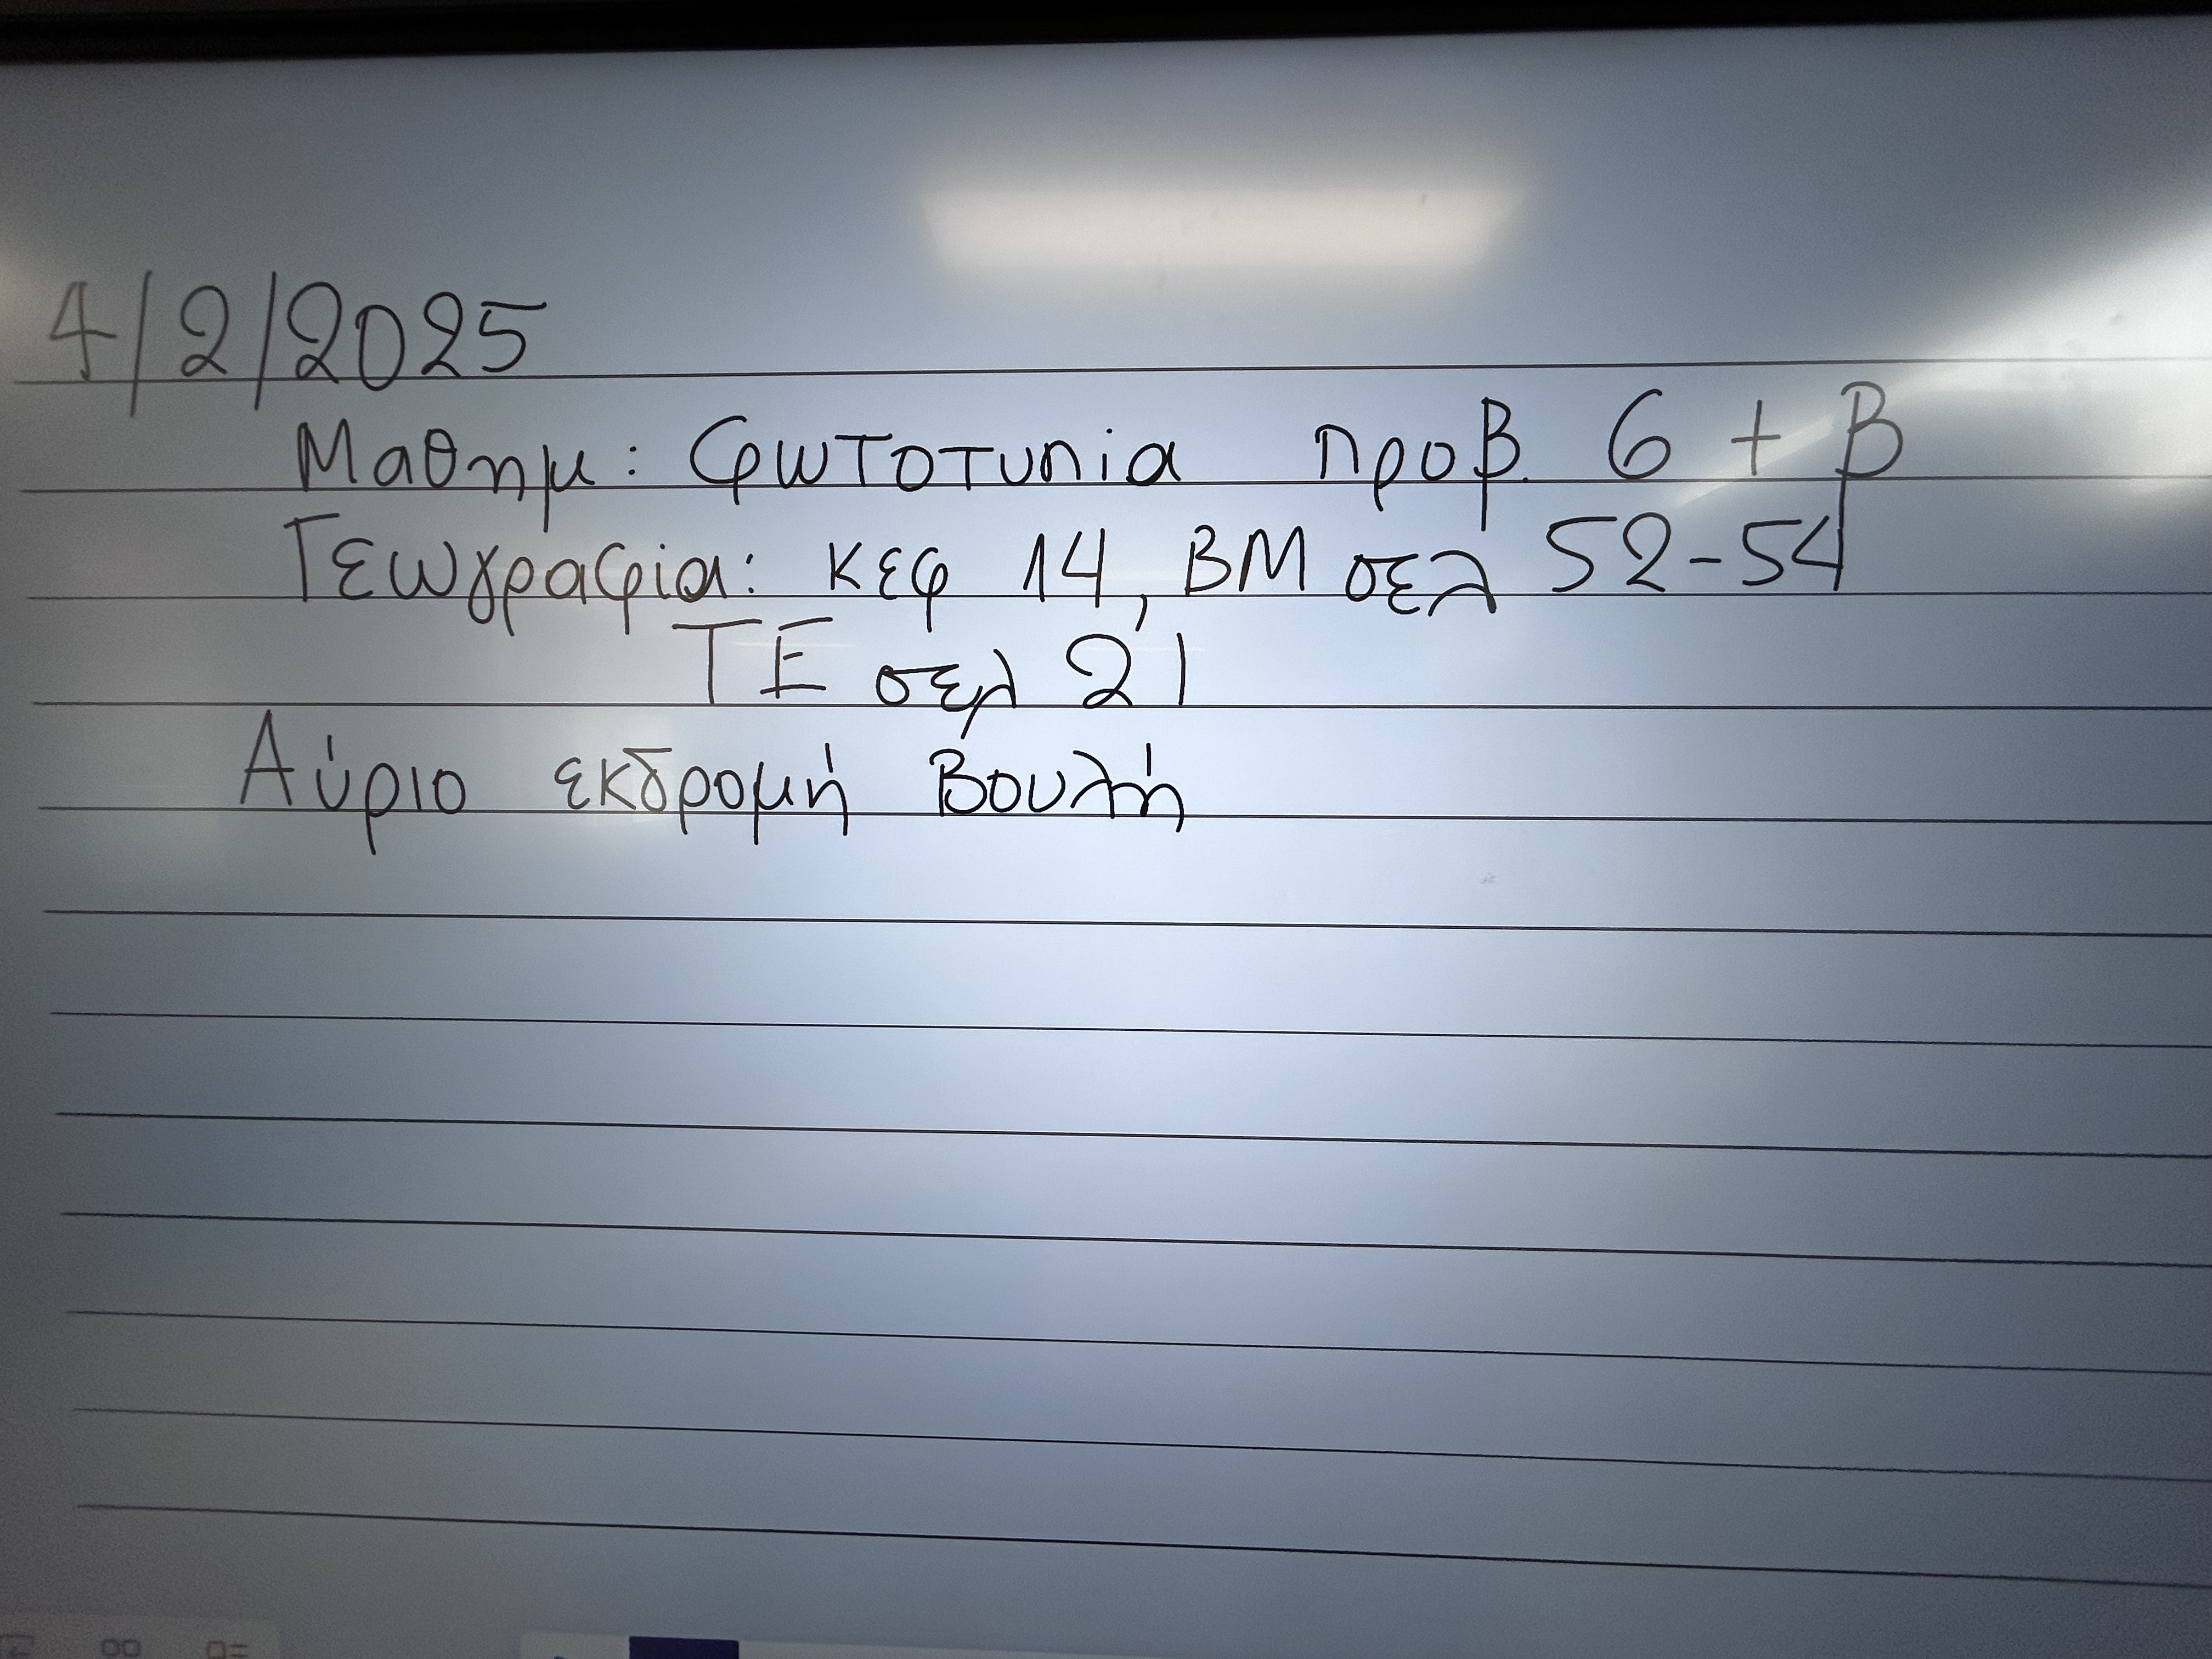 4/2/2025
Μαθημ: Φωτοτυπία προβ. 6 + β
Γεωγραφία: κεφ 14, ΒΜ σελ 52-54
ΤΕ σελ 21
Αύριο εκδρομή Βουλή